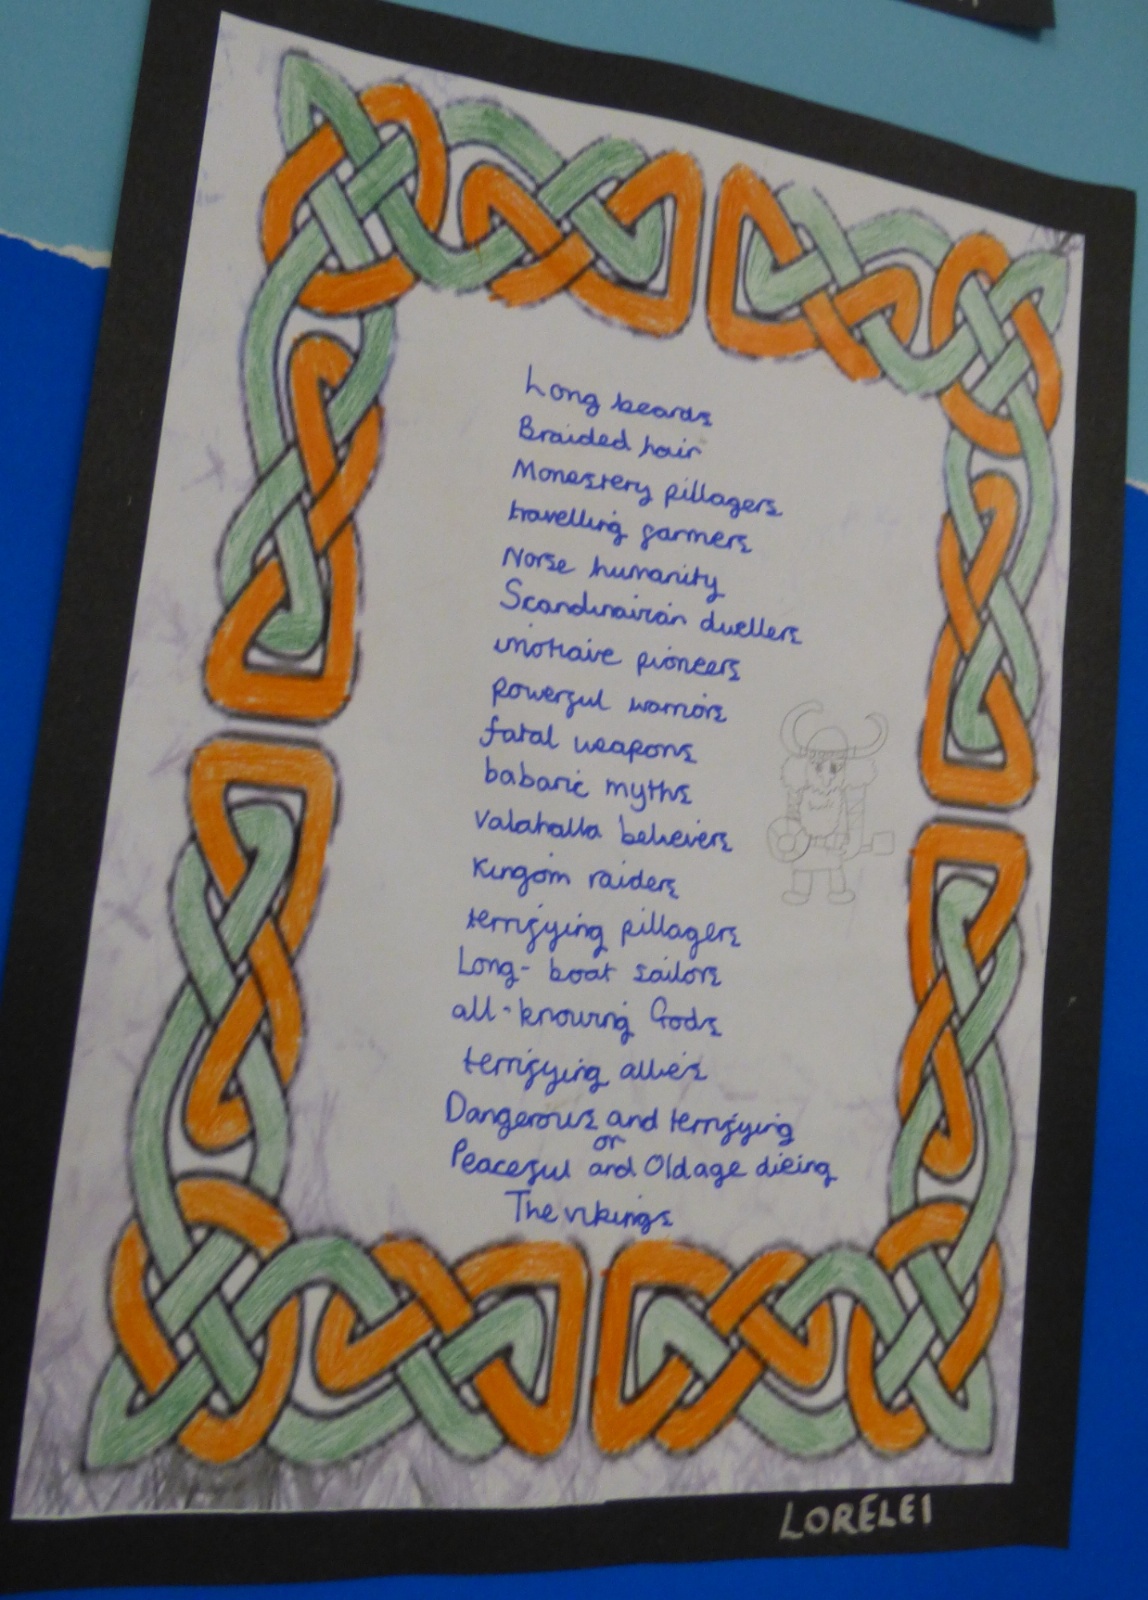 Long beards
Braided hair
Monestery pillagers
travelling farmers
Norse humanity
Scandinaivian dwellers
powerful warriors
fatal weapons
babaric myths
Valahalla believers
Kingom raiders
terrifying pillagers
Long-boat sailors
all-knowing Gods
terrifying allies
Dangerous and terrifying
or
Peaceful and Old age dieing
The vikings
LORELEI